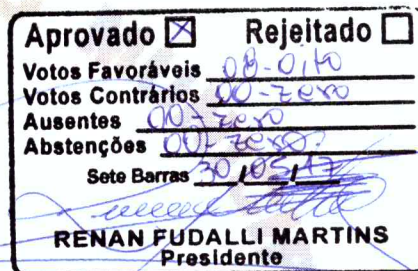 Aprovado ☒ Rejeitado ☐
Votos Favoráveis 08-Oito
Votos Contrários 00-zero
Ausentes 00-zero
Abstenções 00-zero
Sete Barras 30/05/17
RENAN FUDALLI MARTINS
Presidente